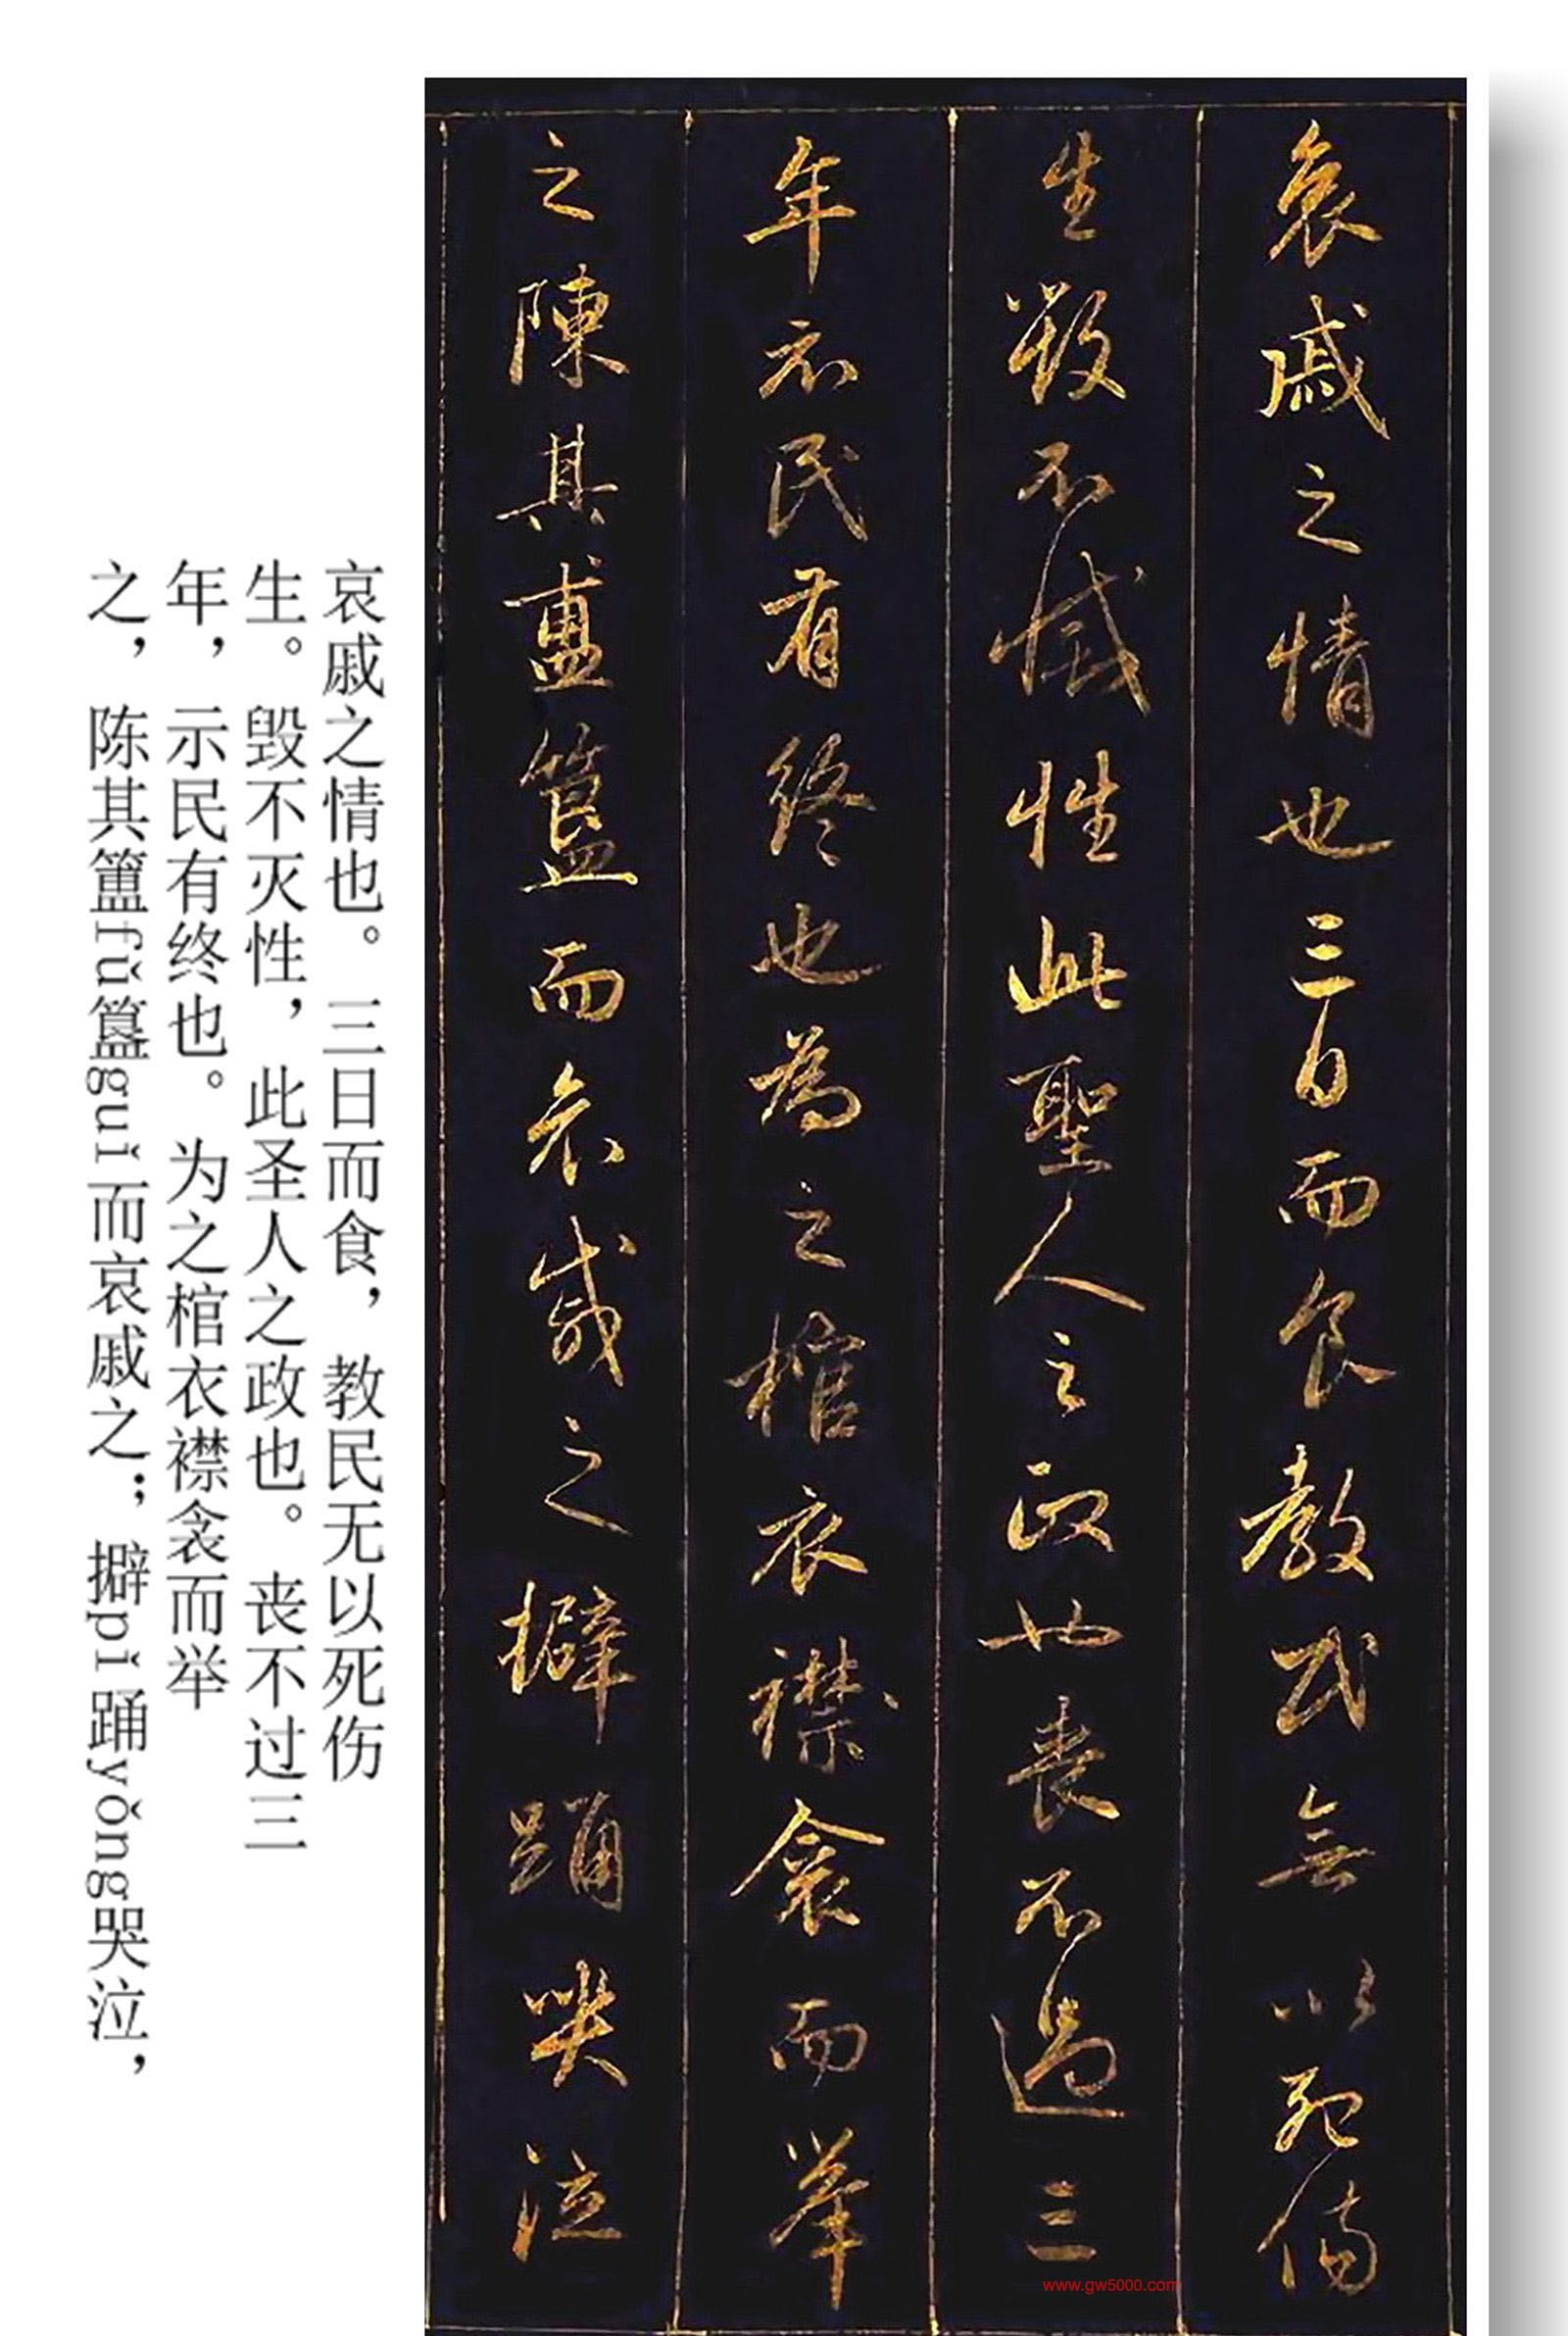 哀戚之情也三日而食教民無以死傷
生毀不滅性此聖人之政也喪不過三
年示民有終也為之棺衣襟衾而举
之陳其簠簋而哀戚之擗踊哭泣
哀戚之情也。三日而食，教民无以死伤
生。毁不灭性，此圣人之政也。丧不过三
年，示民有终也。为之棺衣襟衾而举
之，陈其簠fǔ簋guǐ而哀戚之；擗pǐ踊yǒng哭泣，
www.gw5000.com